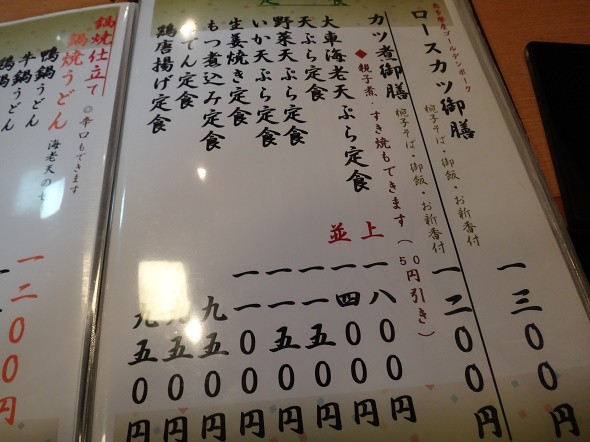 定食
ゴールデンポーク
ロースカツ御膳 椀子そば・御飯・お新香付 一三〇〇円
カツ煮御膳 椀子そば・御飯・お新香付 一二〇〇円
◆親子煮・すき焼もできます（50円引き）
大車海老天ぷら定食 上 一八〇〇円
天ぷら定食 並 一四〇〇円
野菜天ぷら定食 一一五〇円
いか天ぷら定食 一一五〇円
生姜焼き定食 一一〇〇円
もつ煮込み定食 九五〇円
てん定食 九五〇円
鶏唐揚げ定食 九五〇円
鍋焼仕立て ◎辛口もできます
鍋焼うどん 海老天 一二〇〇円
鴨鍋うどん
牛鍋うどん